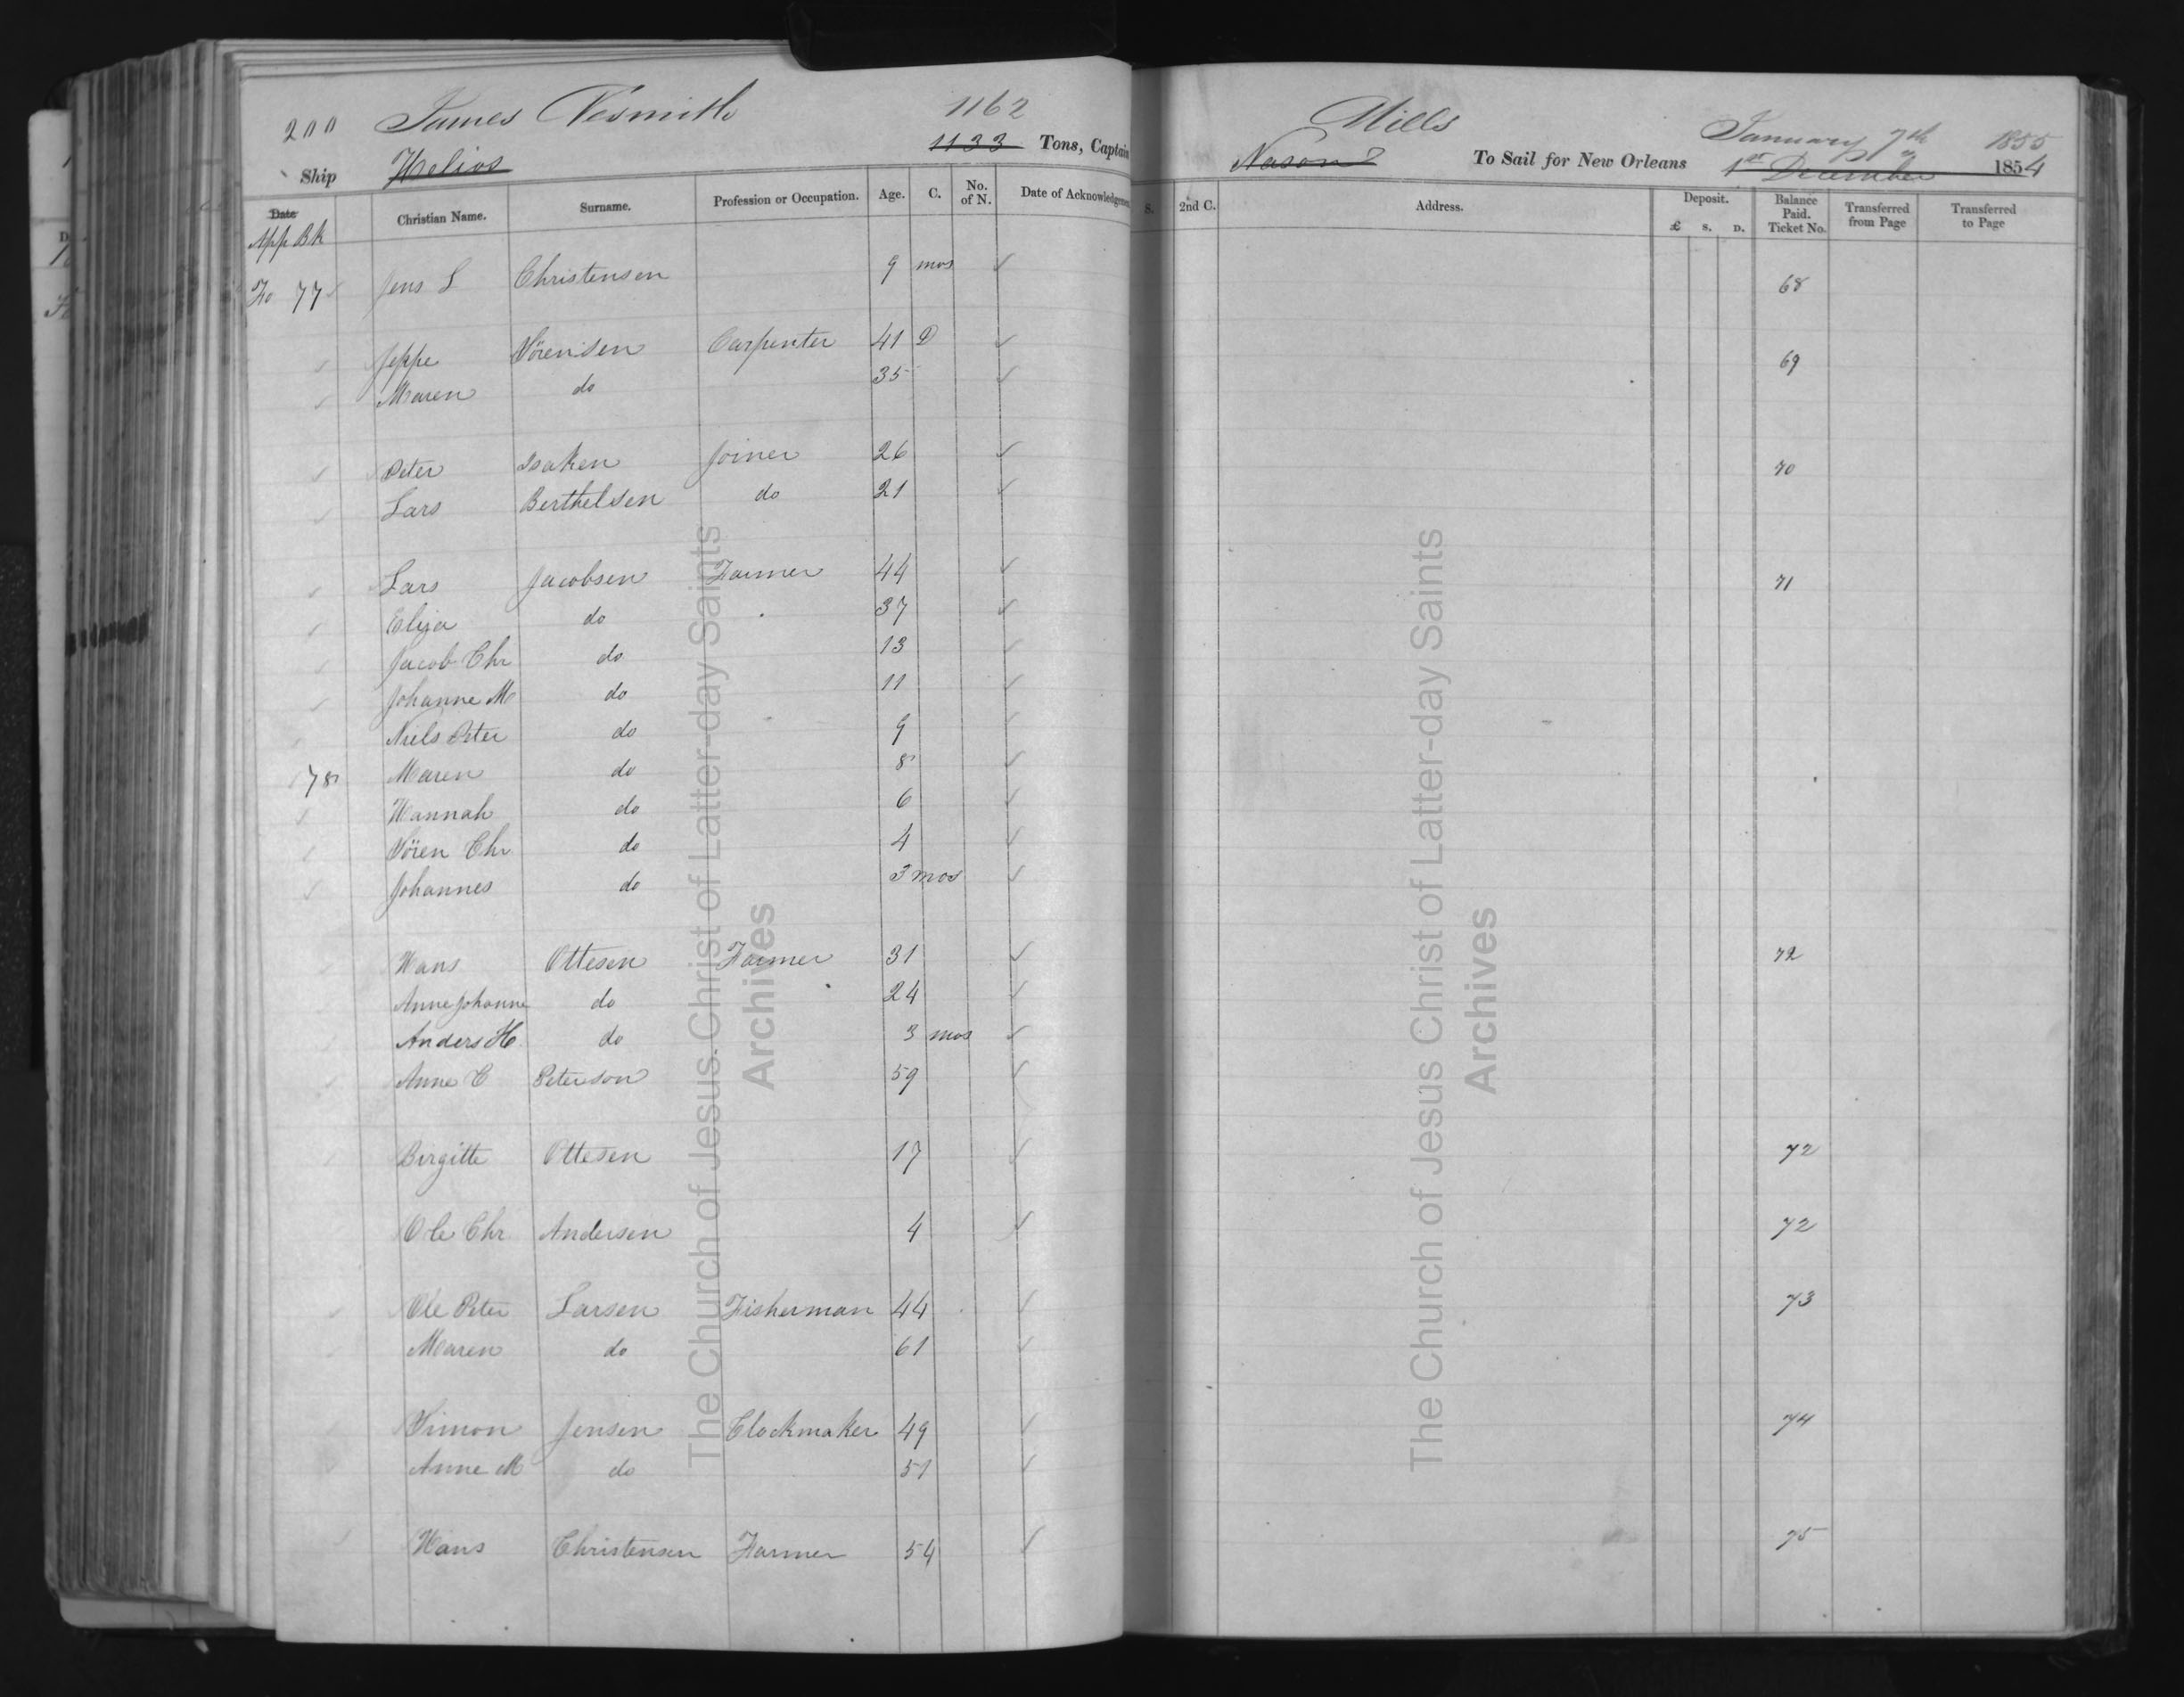 200 James Nesmith 1162 Mills January 7th 1855
Ship Helios 1133 Tons, Captain Nason To Sail for New Orleans 1st December 1854
Date Christian Name. Surname. Profession or Occupation. Age. C. No. of N. Date of Acknowledgment S. 2nd C. Address. Deposit. £ S. D. Balance Paid. Ticket No. Transferred from Page Transferred to Page
App Bk
Fo 77 Jens L Christensen 9 mos 68
Jeppe Sörensen Carpenter 41 D 69
Maren do 35
Peter Isaken Joiner 26 70
Lars Berthelsen do 21
Lars Jacobsen Farmer 44 71
Eliza do 37
Jacob Chr do 13
Johanne M do 11
Niels Peter do 9
78 Maren do 8
Hannah do 6
Sören Chr do 4
Johannes do 3 mos
Hans Ottesen Farmer 31 72
Anne Johanne do 24
Anders H do 3 mos
Anne C Peterson 59
Birgitte Ottesen 17 72
Ole Chr Andersen 4 72
Ole Peter Larsen Fisherman 44 73
Maren do 61
Simon Jensen Clockmaker 49 74
Anne M do 51
Hans Christensen Farmer 54 75
The Church of Jesus Christ of Latter-day Saints
Archives
The Church of Jesus Christ of Latter-day Saints
Archives